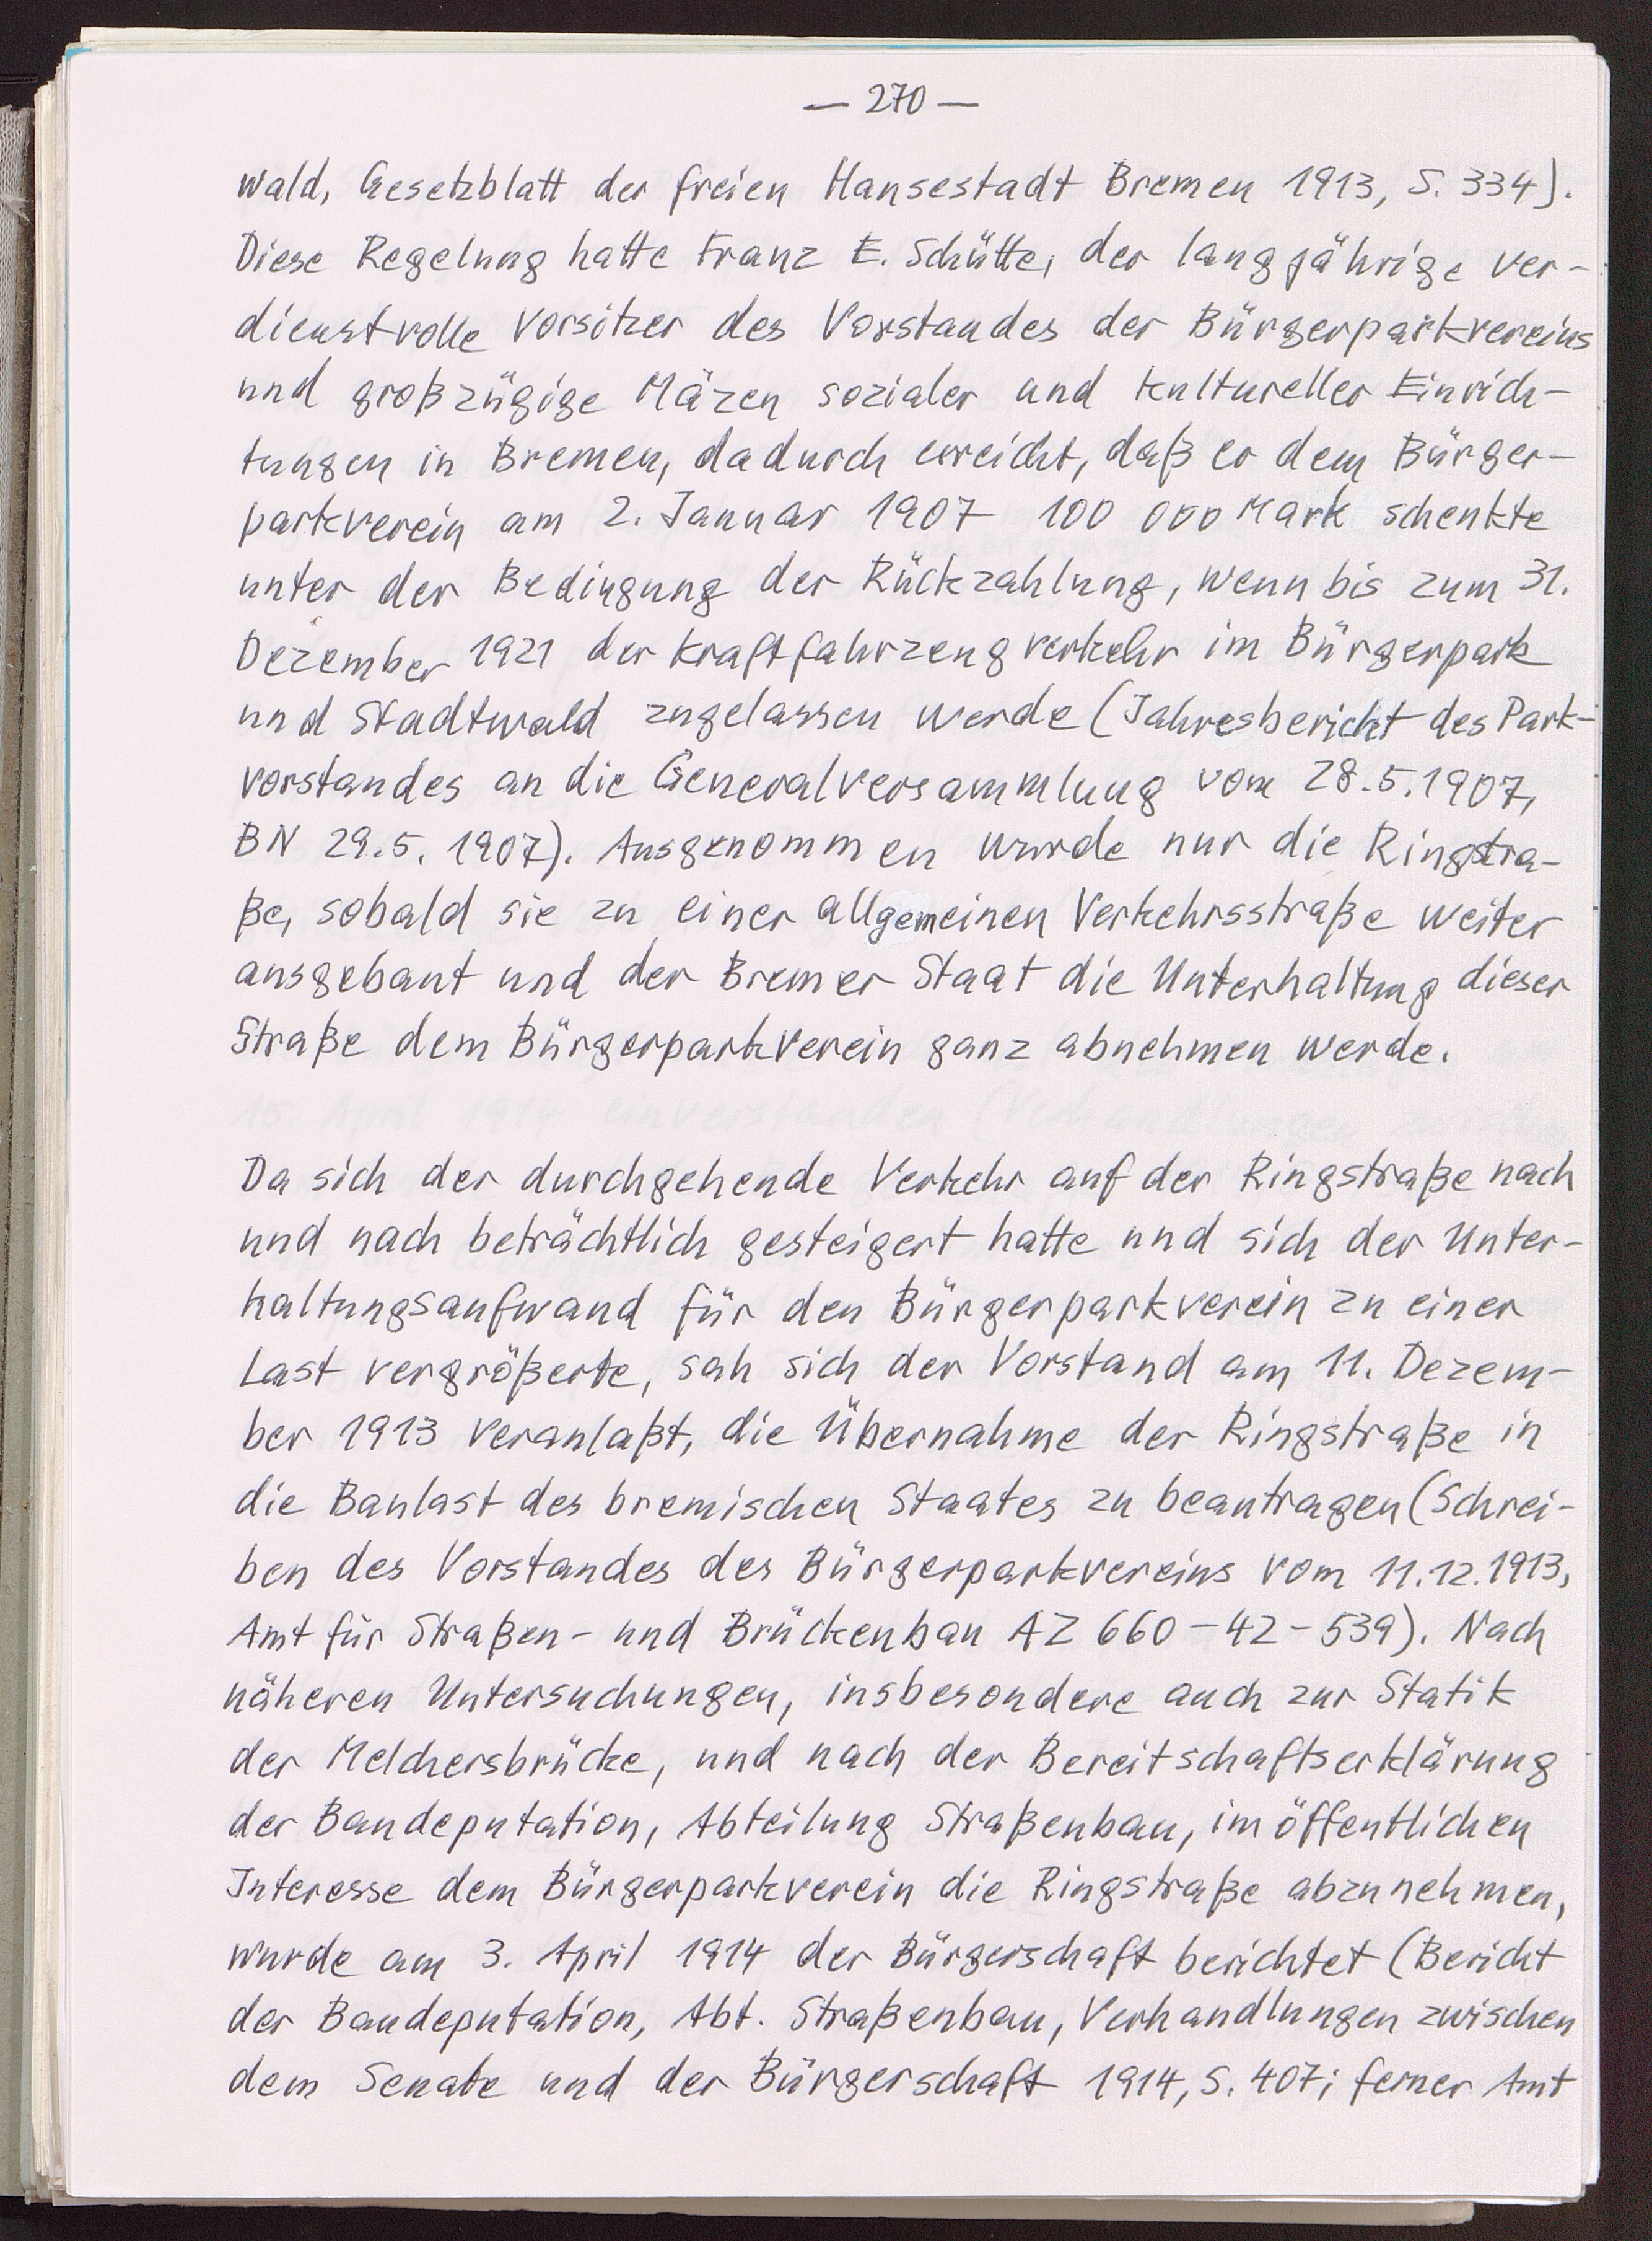 — 270 —
wald, Gesetzblatt der freien Hansestadt Bremen 1913, S. 334).
Diese Regelung hatte Franz E. Schütte, der langjährige ver-
dienstvolle Vorsitzer des Vorstandes der Bürgerparkvereins
und großzügige Mäzen sozialer und kultureller Einrich-
tungen in Bremen, dadurch erreicht, daß er dem Bürger-
parkverein am 2. Januar 1907 100 000 Mark schenkte
unter der Bedingung der Rückzahlung, wenn bis zum 31.
Dezember 1921 der Kraftfahrzeugverkehr im Bürgerpark
und Stadtwald zugelassen werde (Jahresbericht des Park-
vorstandes an die Generalversammlung vom 28.5.1907,
BN 29.5.1907). Ausgenommen wurde nur die Ringstra-
ße, sobald sie zu einer allgemeinen Verkehrsstraße weiter
ausgebaut und der Bremer Staat die Unterhaltung dieser
Straße dem Bürgerparkverein ganz abnehmen werde.
Da sich der durchgehende Verkehr auf der Ringstraße nach
und nach beträchtlich gesteigert hatte und sich der Unter-
haltungsaufwand für den Bürgerparkverein zu einer
Last vergrößerte, sah sich der Vorstand am 11. Dezem-
ber 1913 veranlaßt, die Übernahme der Ringstraße in
die Baulast des bremischen Staates zu beantragen (Schrei-
ben des Vorstandes des Bürgerparkvereins vom 11.12.1913,
Amt für Straßen- und Brückenbau AZ 660-42-539). Nach
näheren Untersuchungen, insbesondere auch zur Statik
der Melchersbrücke, und nach der Bereitschaftserklärung
der Baudeputation, Abteilung Straßenbau, im öffentlichen
Interesse dem Bürgerparkverein die Ringstraße abzunehmen,
wurde am 3. April 1914 der Bürgerschaft berichtet (Bericht
der Baudeputation, Abt. Straßenbau, Verhandlungen zwischen
dem Senate und der Bürgerschaft 1914, S. 407; ferner Amt